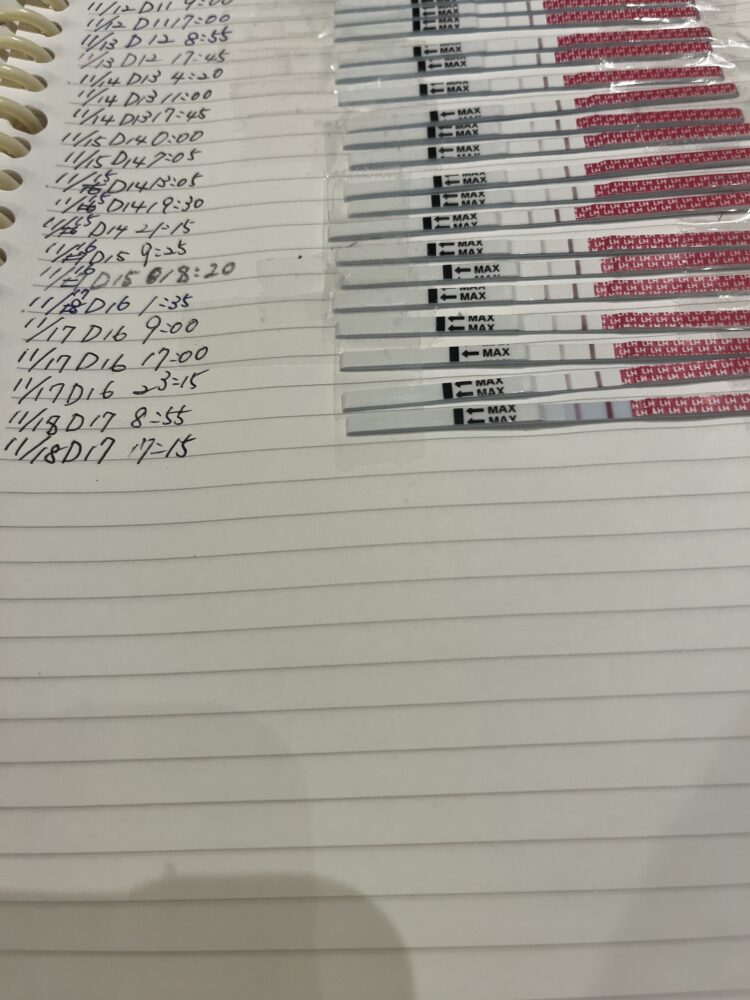 11/12 D11 9:00
11/12 D11 17:00
11/13 D12 8:55
11/13 D12 17:45
11/14 D13 4:20
11/14 D13 11:00
11/14 D13 17:45
11/15 D14 0:00
11/15 D14 7:05
11/15 D14 13:05
11/15 D14 19:30
11/15 D14 21:15
11/16 D15 9:25
11/16 D15 18:20
11/17 D16 1:35
11/17 D16 9:00
11/17 D16 17:00
11/17 D16 23:15
11/18 D17 8:55
11/18 D17 17:15
← MAX
← MAX
← MAX
← MAX
← MAX
← MAX
← MAX
← MAX
← MAX
← MAX
← MAX
← MAX
← MAX
← MAX
← MAX
← MAX
← MAX
← MAX
LH LH LH LH LH LH LH